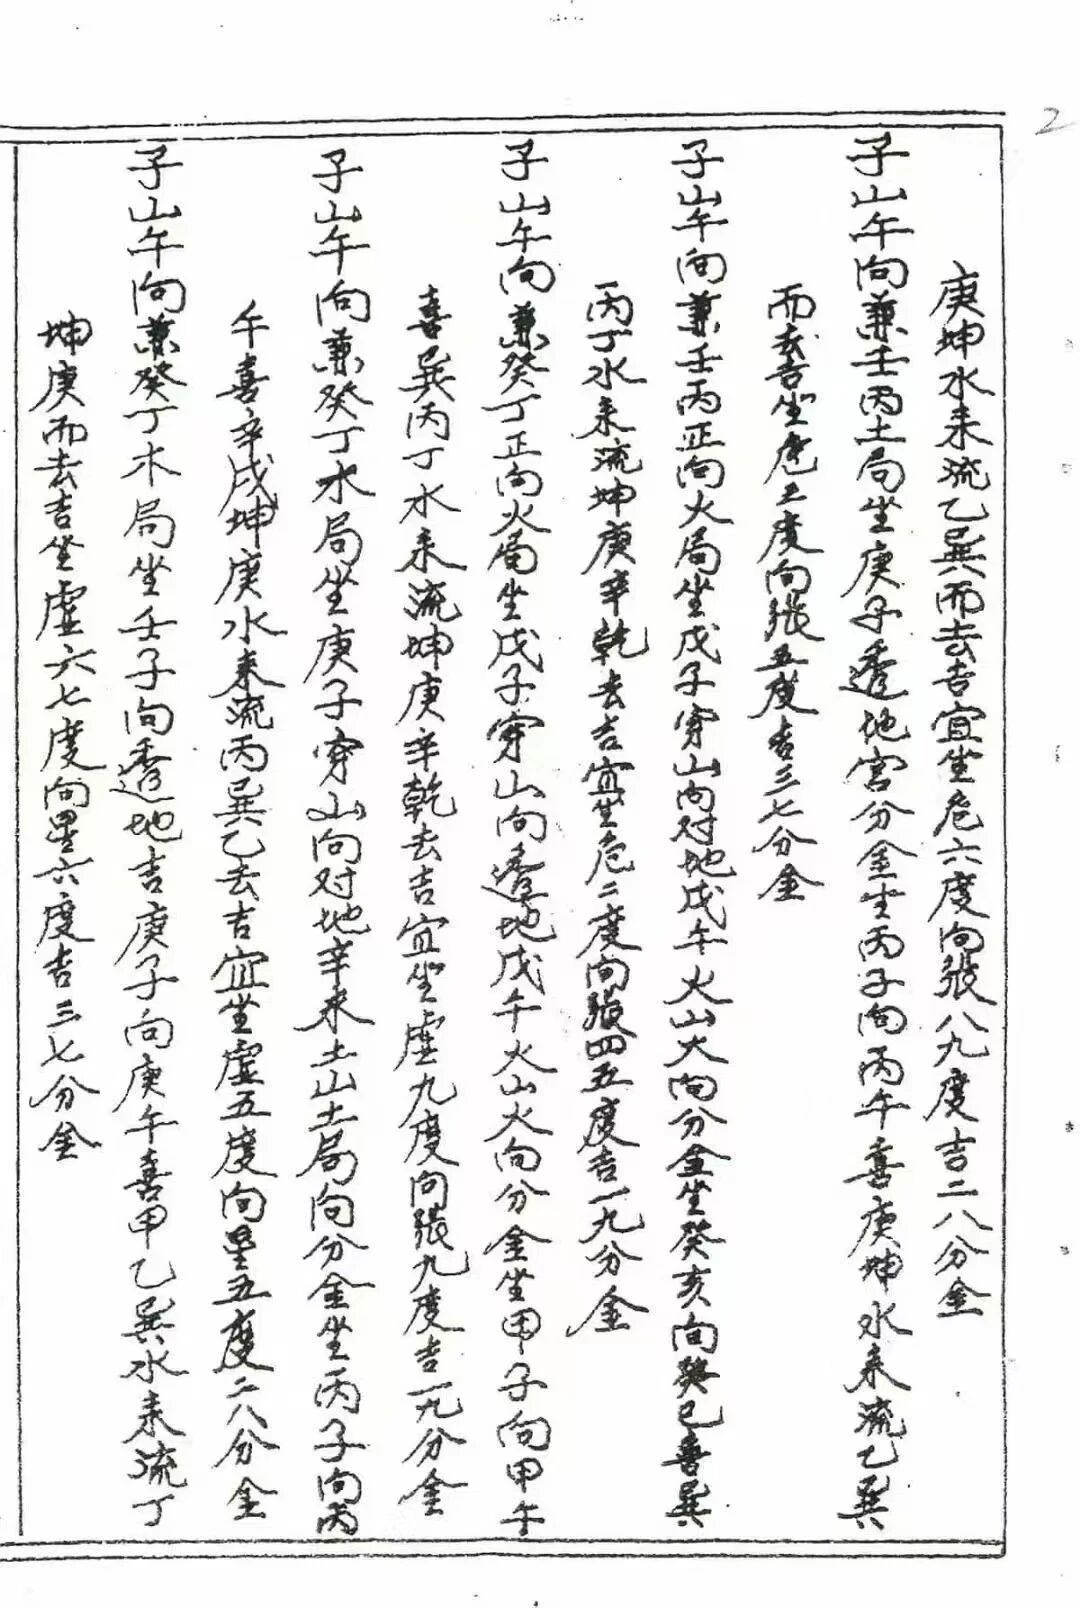 2
庚坤水来流乙巽而去吉宜坐危六度向张八九度吉二八分金
子山午向兼壬丙土局坐庚子透地宫分金坐丙子向丙午喜庚坤水来流乙巽
而去吉坐危五度向张五度吉三七分金
子山午向兼壬丙正向火局坐戊子穿山向对地戊午火山大向分金坐癸亥向癸巳喜巽
丙丁水来流坤庚辛乾去吉宜坐危二度向张四五度吉一九分金
子山午向兼癸丁正向火局坐戊子穿山向透地戊午火山火向分金坐甲子向甲午
喜巽丙丁水来流坤庚辛乾去吉宜坐虚九度向张九度吉一九分金
子山午向兼癸丁水局坐庚子穿山向对地辛未土山土局向分金坐丙子向丙
午喜辛戌坤庚水来流丙巽乙去吉宜坐虚五度向星五度二八分金
子山午向兼癸丁木局坐壬子向透地吉庚子向庚午喜甲乙巽水来流丁
坤庚而去吉坐虚六七度向星六度吉三七分金